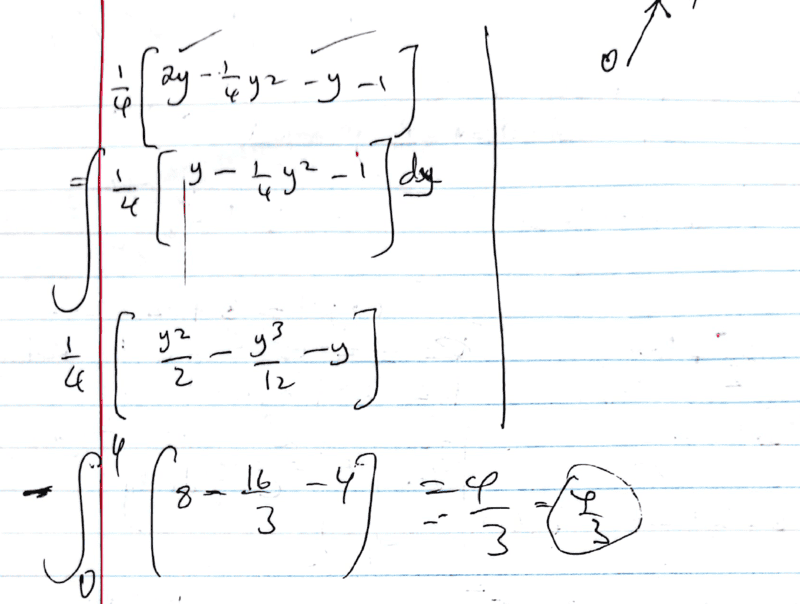 0
1/4 [2y - 1/4 y² - y - 1]
= ∫ 1/4 [y - 1/4 y² - 1] dy
1/4 [y²/2 - y³/12 - y]
- ∫₀⁴ (8 - 16/3 - 4) = -4/3 = 4/3